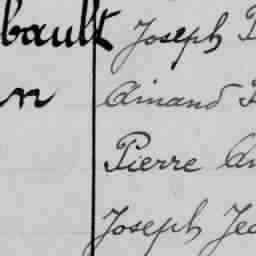 bault Joseph
n Amand
Pierre
Joseph